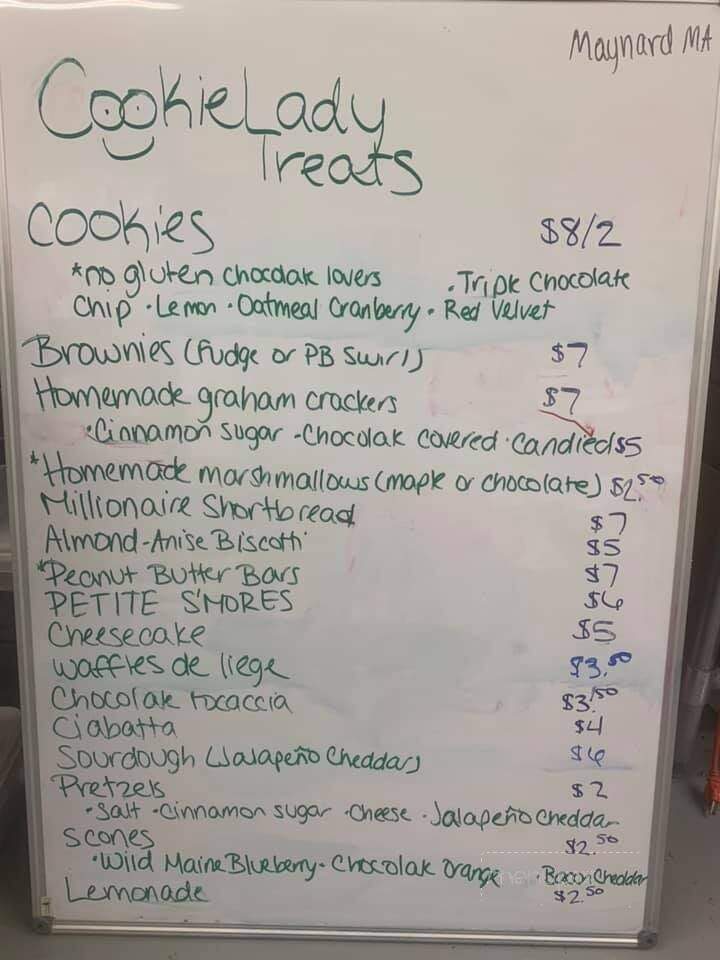 Maynard MA
CookieLady
Treats
Cookies $8/2
*no gluten chocolate lovers • Triple Chocolate
Chip • Lemon • Oatmeal Cranberry • Red Velvet
Brownies (Fudge or PB Swirl) $7
Homemade graham crackers $7
• Cinnamon sugar - Chocolate covered • Candied $5
*Homemade marshmallows (maple or chocolate) $2.50
Millionaire Shortbread $7
Almond-Anise Biscotti $5
*Peanut Butter Bars $7
PETITE S'MORES $6
Cheesecake $5
Waffles de liege $3.50
Chocolate focaccia $3.50
Ciabatta $4
Sourdough (Jalapeño Cheddar) $6
Pretzels $2
• Salt • Cinnamon sugar • Cheese • Jalapeño Cheddar
Scones $2.50
• Wild Maine Blueberry • Chocolate Orange • Bacon Cheddar
Lemonade $2.50